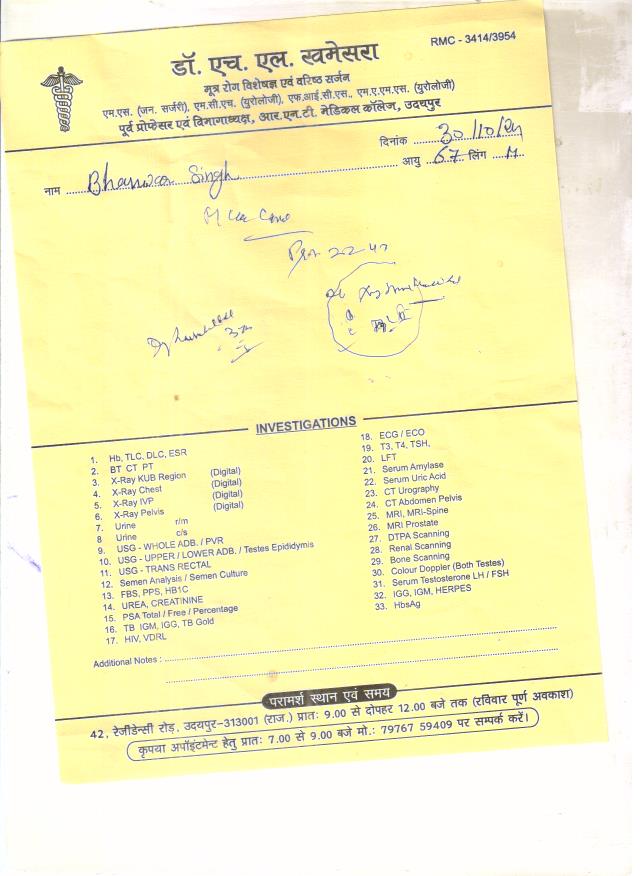 RMC - 3414/3954
डॉ. एच. एल. खमेसरा
मूत्र रोग विशेषज्ञ एवं वरिष्ठ सर्जन
एम.एस. (जन. सर्जरी), एम.सी.एच. (युरोलोजी), एफ.आई.सी.एस., एम.ए.एम.एस. (युरोलोजी)
पूर्व प्रोफेसर एवं विभागाध्यक्ष, आर.एन.टी. मेडिकल कॉलेज, उदयपुर
दिनांक 30/10/24
नाम Bhanwar Singh आयु 67 लिंग M
22.47
INVESTIGATIONS
1. Hb, TLC, DLC, ESR
2. BT CT PT
3. X-Ray KUB Region (Digital)
4. X-Ray Chest (Digital)
5. X-Ray IVP (Digital)
6. X-Ray Pelvis (Digital)
7. Urine r/m
8 Urine c/s
9. USG - WHOLE ADB. / PVR
10. USG - UPPER / LOWER ADB. / Testes Epididymis
11. USG - TRANS RECTAL
12. Semen Analysis / Semen Culture
13. FBS, PPS, HB1C
14. UREA, CREATININE
15. PSA Total / Free / Percentage
16. TB IGM, IGG, TB Gold
17. HIV, VDRL
18. ECG / ECO
19. T3, T4, TSH,
20. LFT
21. Serum Amylase
22. Serum Uric Acid
23. CT Urography
24. CT Abdomen Pelvis
25. MRI, MRI-Spine
26. MRI Prostate
27. DTPA Scanning
28. Renal Scanning
29. Bone Scanning
30. Colour Doppler (Both Testes)
31. Serum Testosterone LH / FSH
32. IGG, IGM, HERPES
33. HbsAg
Additional Notes :
परामर्श स्थान एवं समय
42, रेजीडेन्सी रोड़, उदयपुर-313001 (राज.) प्रातः 9.00 से दोपहर 12.00 बजे तक (रविवार पूर्ण अवकाश)
कृपया अपॉइंटमेन्ट हेतु प्रातः 7.00 से 9.00 बजे मो.: 79767 59409 पर सम्पर्क करें।